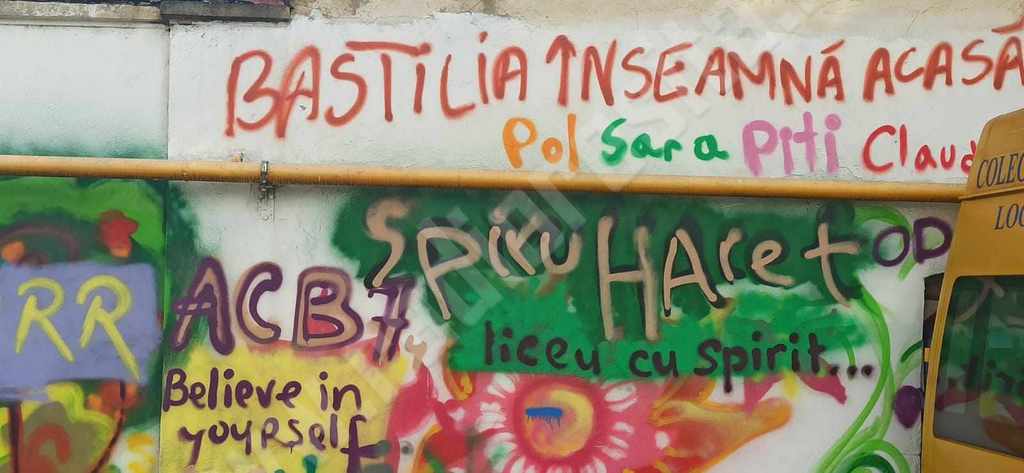 BASTILIA ÎNSEAMNĂ ACASĂ
Pol Sara Piti Claud
COLEC
LOC
Spiru HAret
OD
RR
ACB
liceu cu spirit...
Believe in
yoyRself